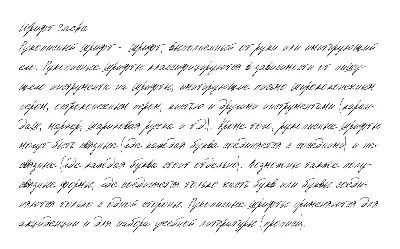 Шрифт Заева
Рукописный шрифт - шрифт, выполненный от руки или имитирующий
его. Рукописные шрифты классифицируются в зависимости от пишу-
щего инструмента на шрифты, имитирующие письмо ширококонечным
пером, остроконечным пером, кистью и другими инструментами (каран-
даш, маркер, шариковая ручка и т.д.). Кроме того, рукописные шрифты
могут быть связные (где каждая буква соединяется с соседними) и не-
связные (где каждая буква стоит отдельно). Возможны также полу-
связные формы, где соединяется только часть букв или буквы соеди-
няются только с одной стороны. Рукописные шрифты применяются для
акциденции и для набора учебной литературы (прописи).